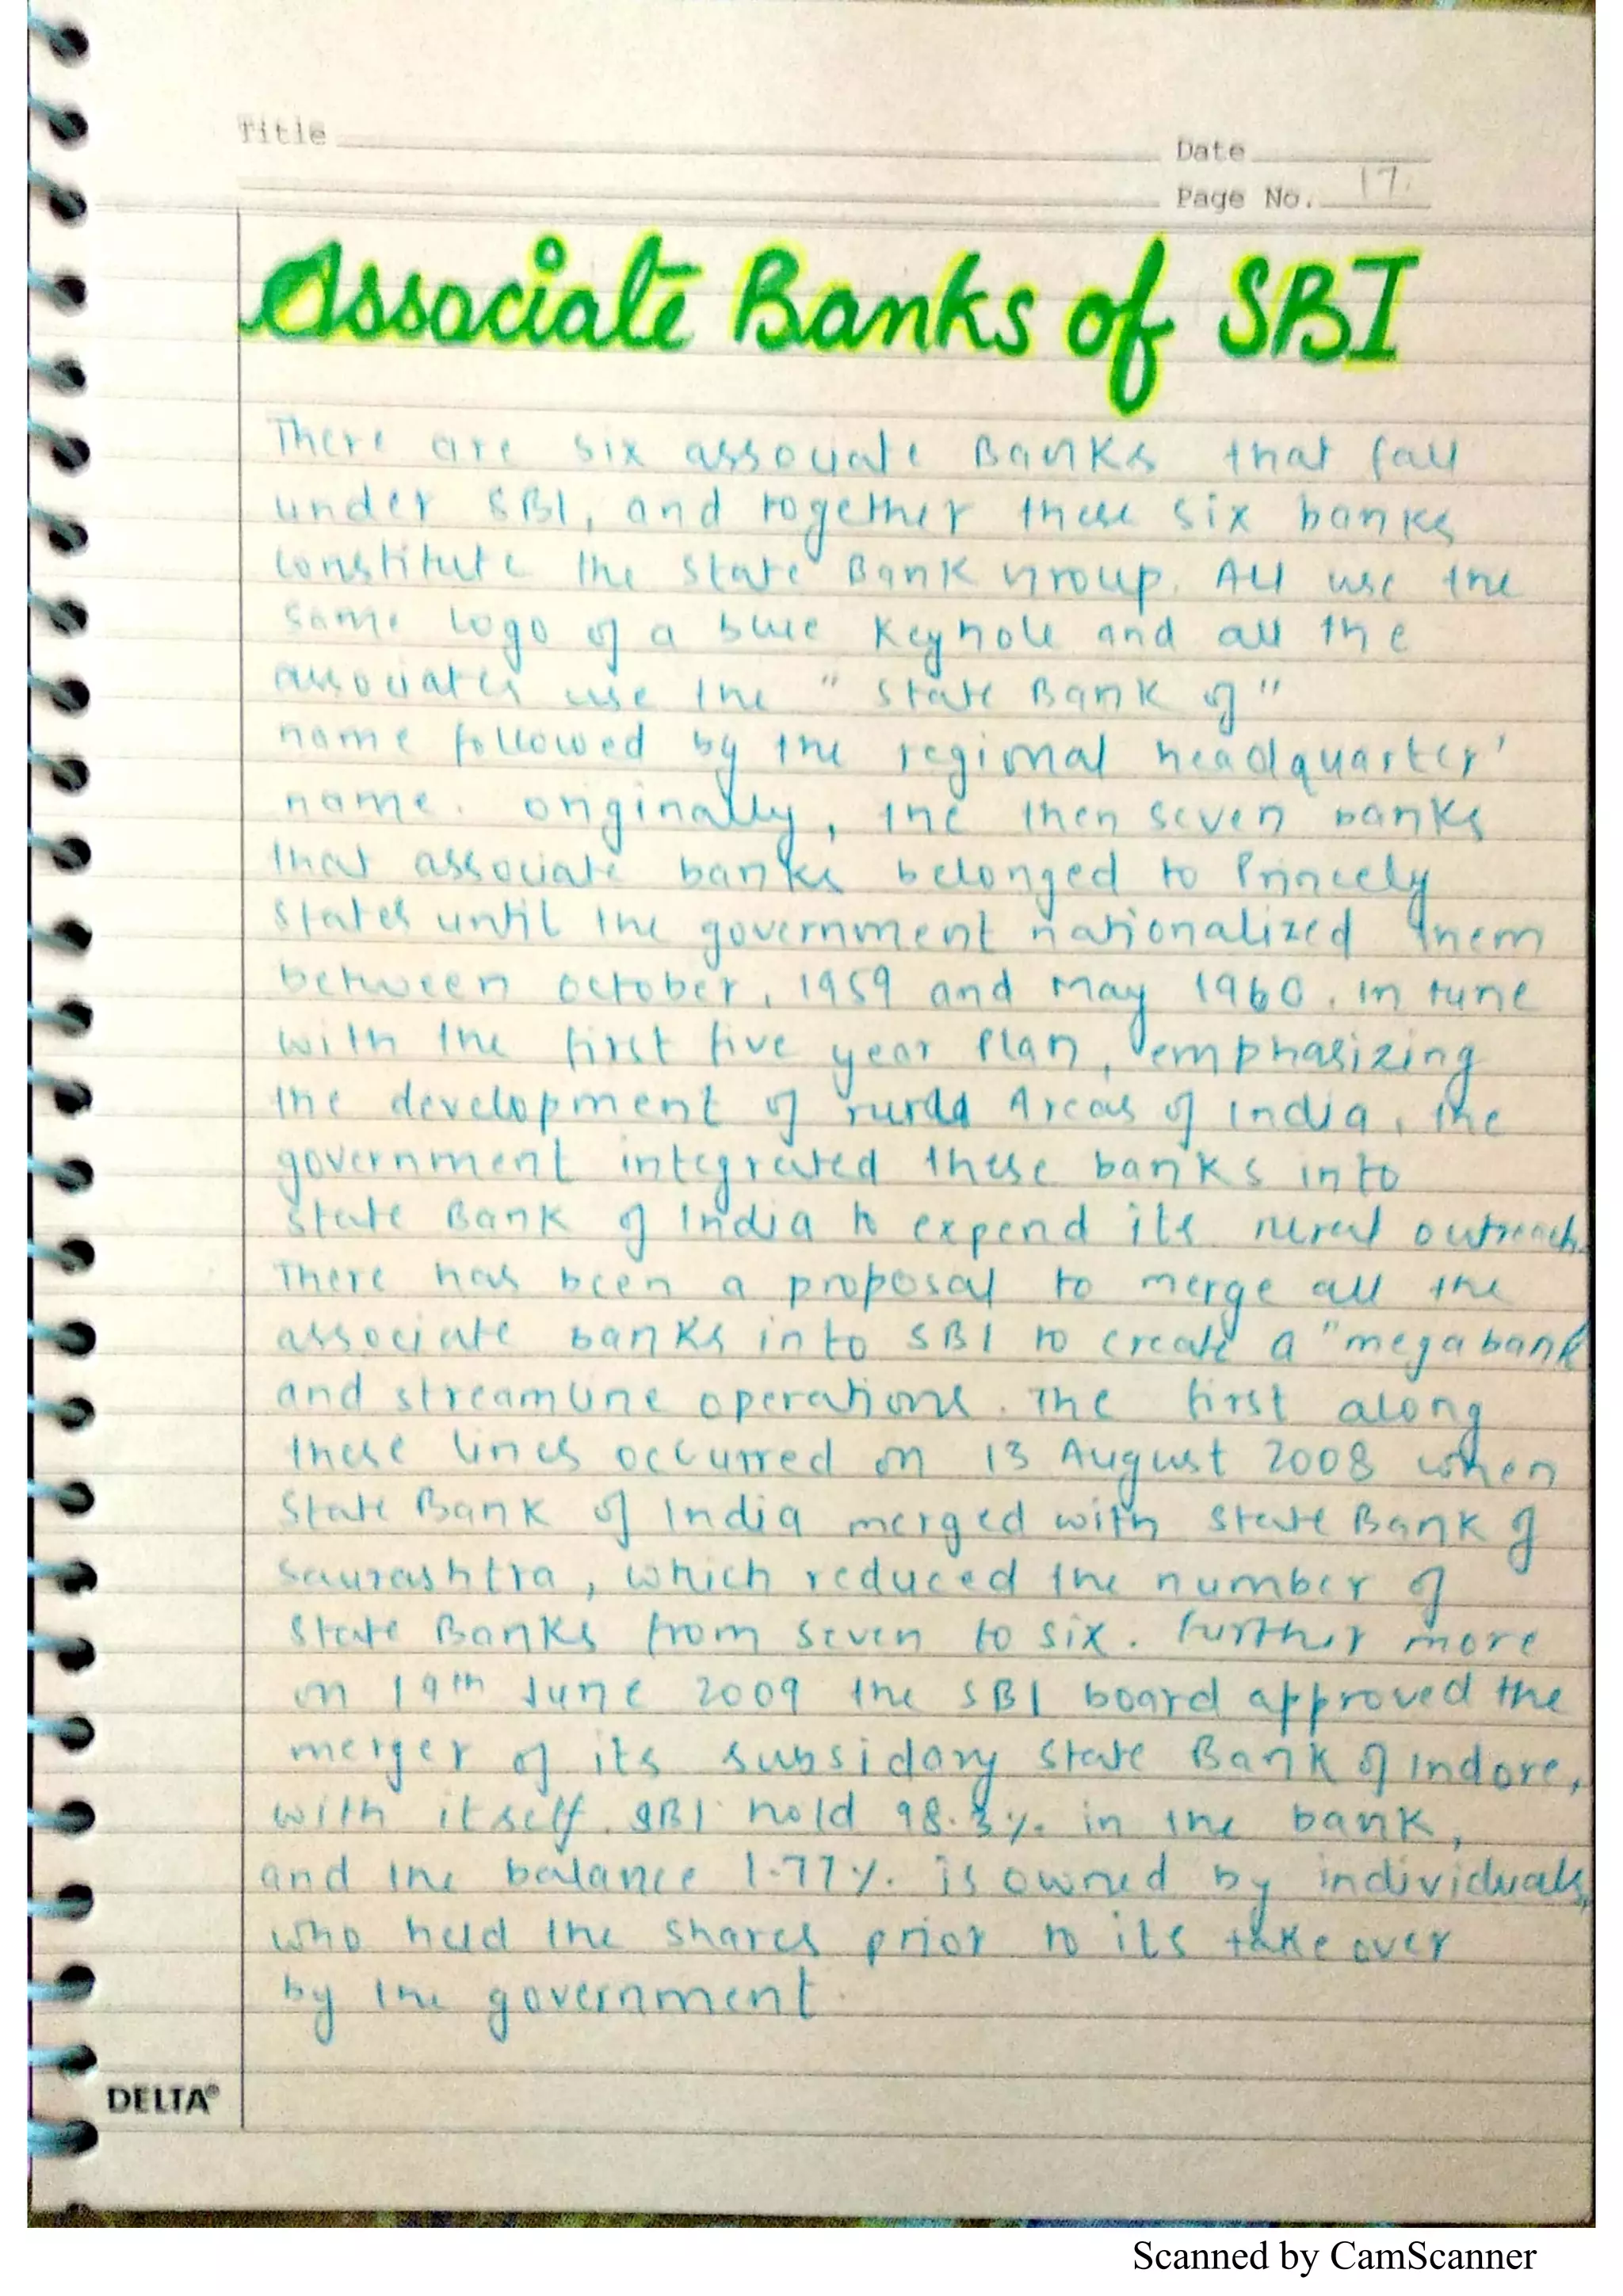 Title
Date
Page No. 17.
Associate Banks of SBI
There are six associate Banks that fall
under SBI, and together these six banks
constitute the State Bank Group. All use the
same logo of a blue Keyhole and all the
associates use the " State Bank of "
name followed by the regional headquarter'
name. originally, the then seven banks
that associate banks belonged to Princely
States until the government nationalized them
between october, 1959 and may 1960. in tune
with the first five year Plan, emphasizing
the development of rural Areas of India, the
government integrated these banks into
State Bank of India to expend its rural outreach.
There has been a proposal to merge all the
associate banks into SBI to create a "mega bank
and streamline operations. The first along
these lines occurred on 13 August 2008 when
State Bank of India merged with State Bank of
Saurashtra, which reduced the number of
State Banks from seven to six. further more
on 19th June 2009 the SBI board approved the
merger of its subsidary State Bank of Indore,
with itself. SBI hold 98.3%. in the bank,
and the balance 1.77%. is owned by individuals,
who held the shares prior to its take over
by the government.
DELTA®
Scanned by CamScanner